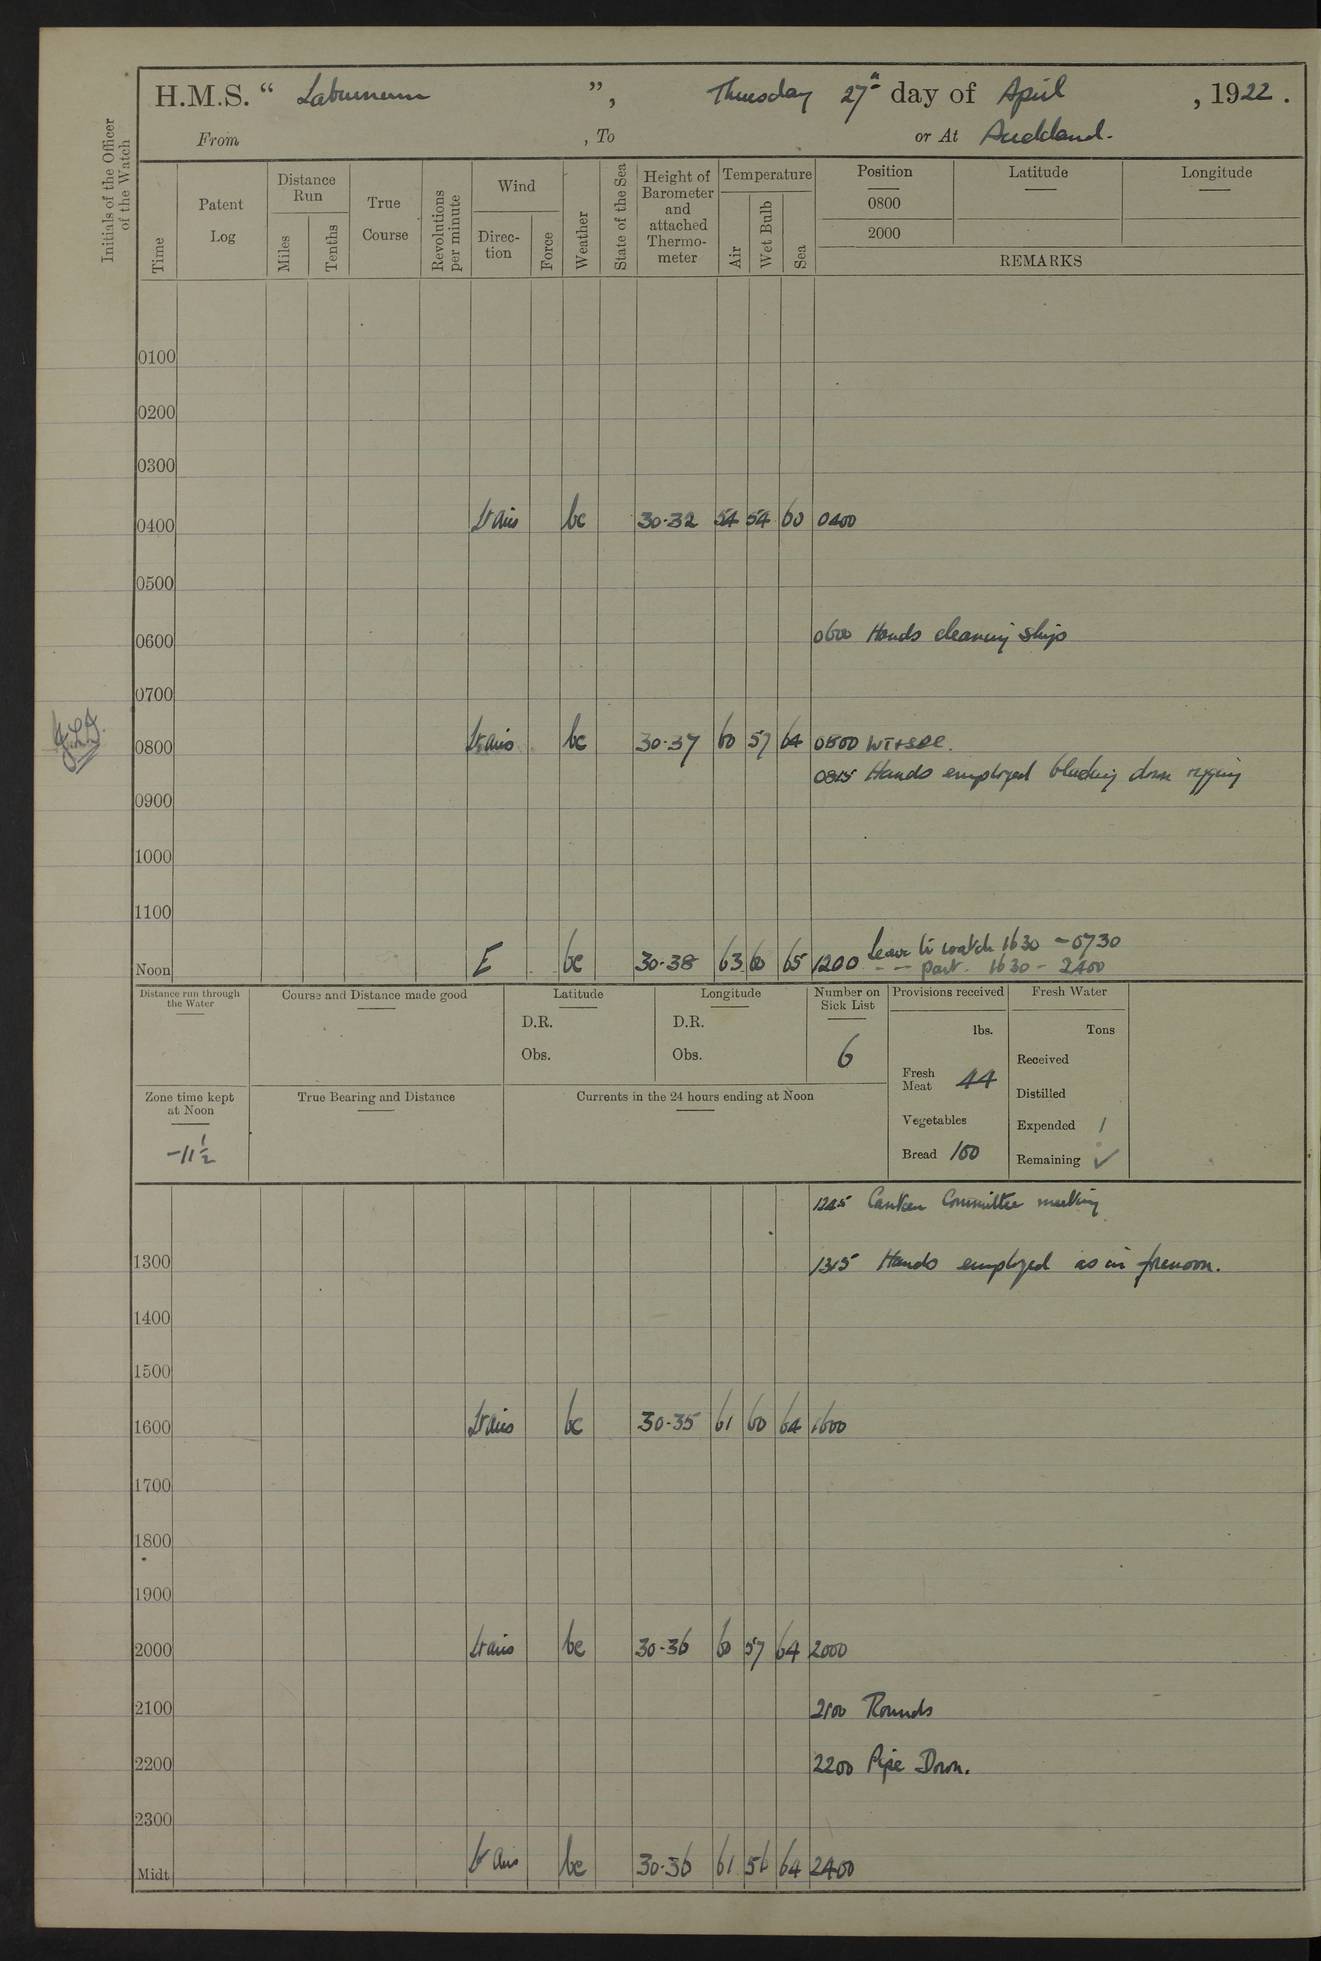 H.M.S. “ Laburnum ”, Thursday 27th day of April , 1922.
From , To or At Auckland.
Initials of the Officer of the Watch
Time
Patent Log
Distance Run
Miles
Tenths
True Course
Revolutions per minute
Wind
Direction
Force
Weather
State of the Sea
Height of Barometer and attached Thermometer
Temperature
Air
Wet Bulb
Sea
Position Latitude Longitude
0800
2000
REMARKS
0100
0200
0300
0400 Lt airs bc 30·32 54 54 60 0400
0500
0600 0600 Hands cleaning ship
0700
0800 Lt airs bc 30·37 60 57 64 0800
0815 Hands employed blacking down rigging
0900
1000
1100
Leave to watch 1630 - 0730
Noon E bc 30·38 63 60 65 1200 - - part. 1630 - 2400
Distance run through the Water
Course and Distance made good
Latitude
D.R.
Obs.
Longitude
D.R.
Obs.
Number on Sick List
6
Provisions received
lbs.
Fresh Meat 44
Vegetables
Bread 100
Fresh Water
Tons
Received
Distilled
Expended 1
Remaining ✓
Zone time kept at Noon
-11½
True Bearing and Distance
Currents in the 24 hours ending at Noon
1245 Canteen Committee meeting
1300 1315 Hands employed as in forenoon.
1400
1500
1600 Lt airs bc 30·35 61 60 64 1600
1700
1800
1900
2000 Lt airs bc 30·36 60 57 64 2000
2100 2100 Rounds
2200 2200 Pipe Down.
2300
Midt Lt airs bc 30·36 61 56 64 2400